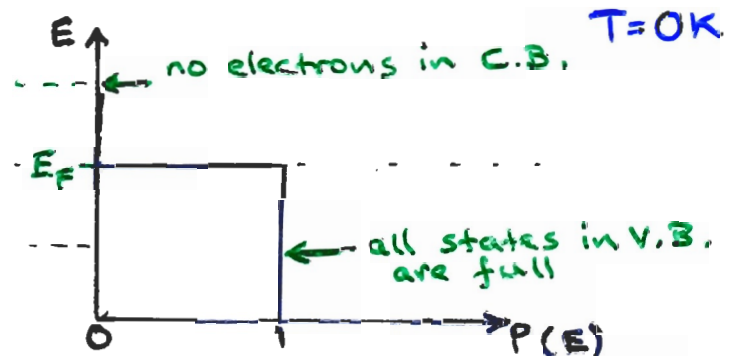 T=0K
E
no electrons in C.B.
E_F
all states in V.B.
are full
0
1
P(E)